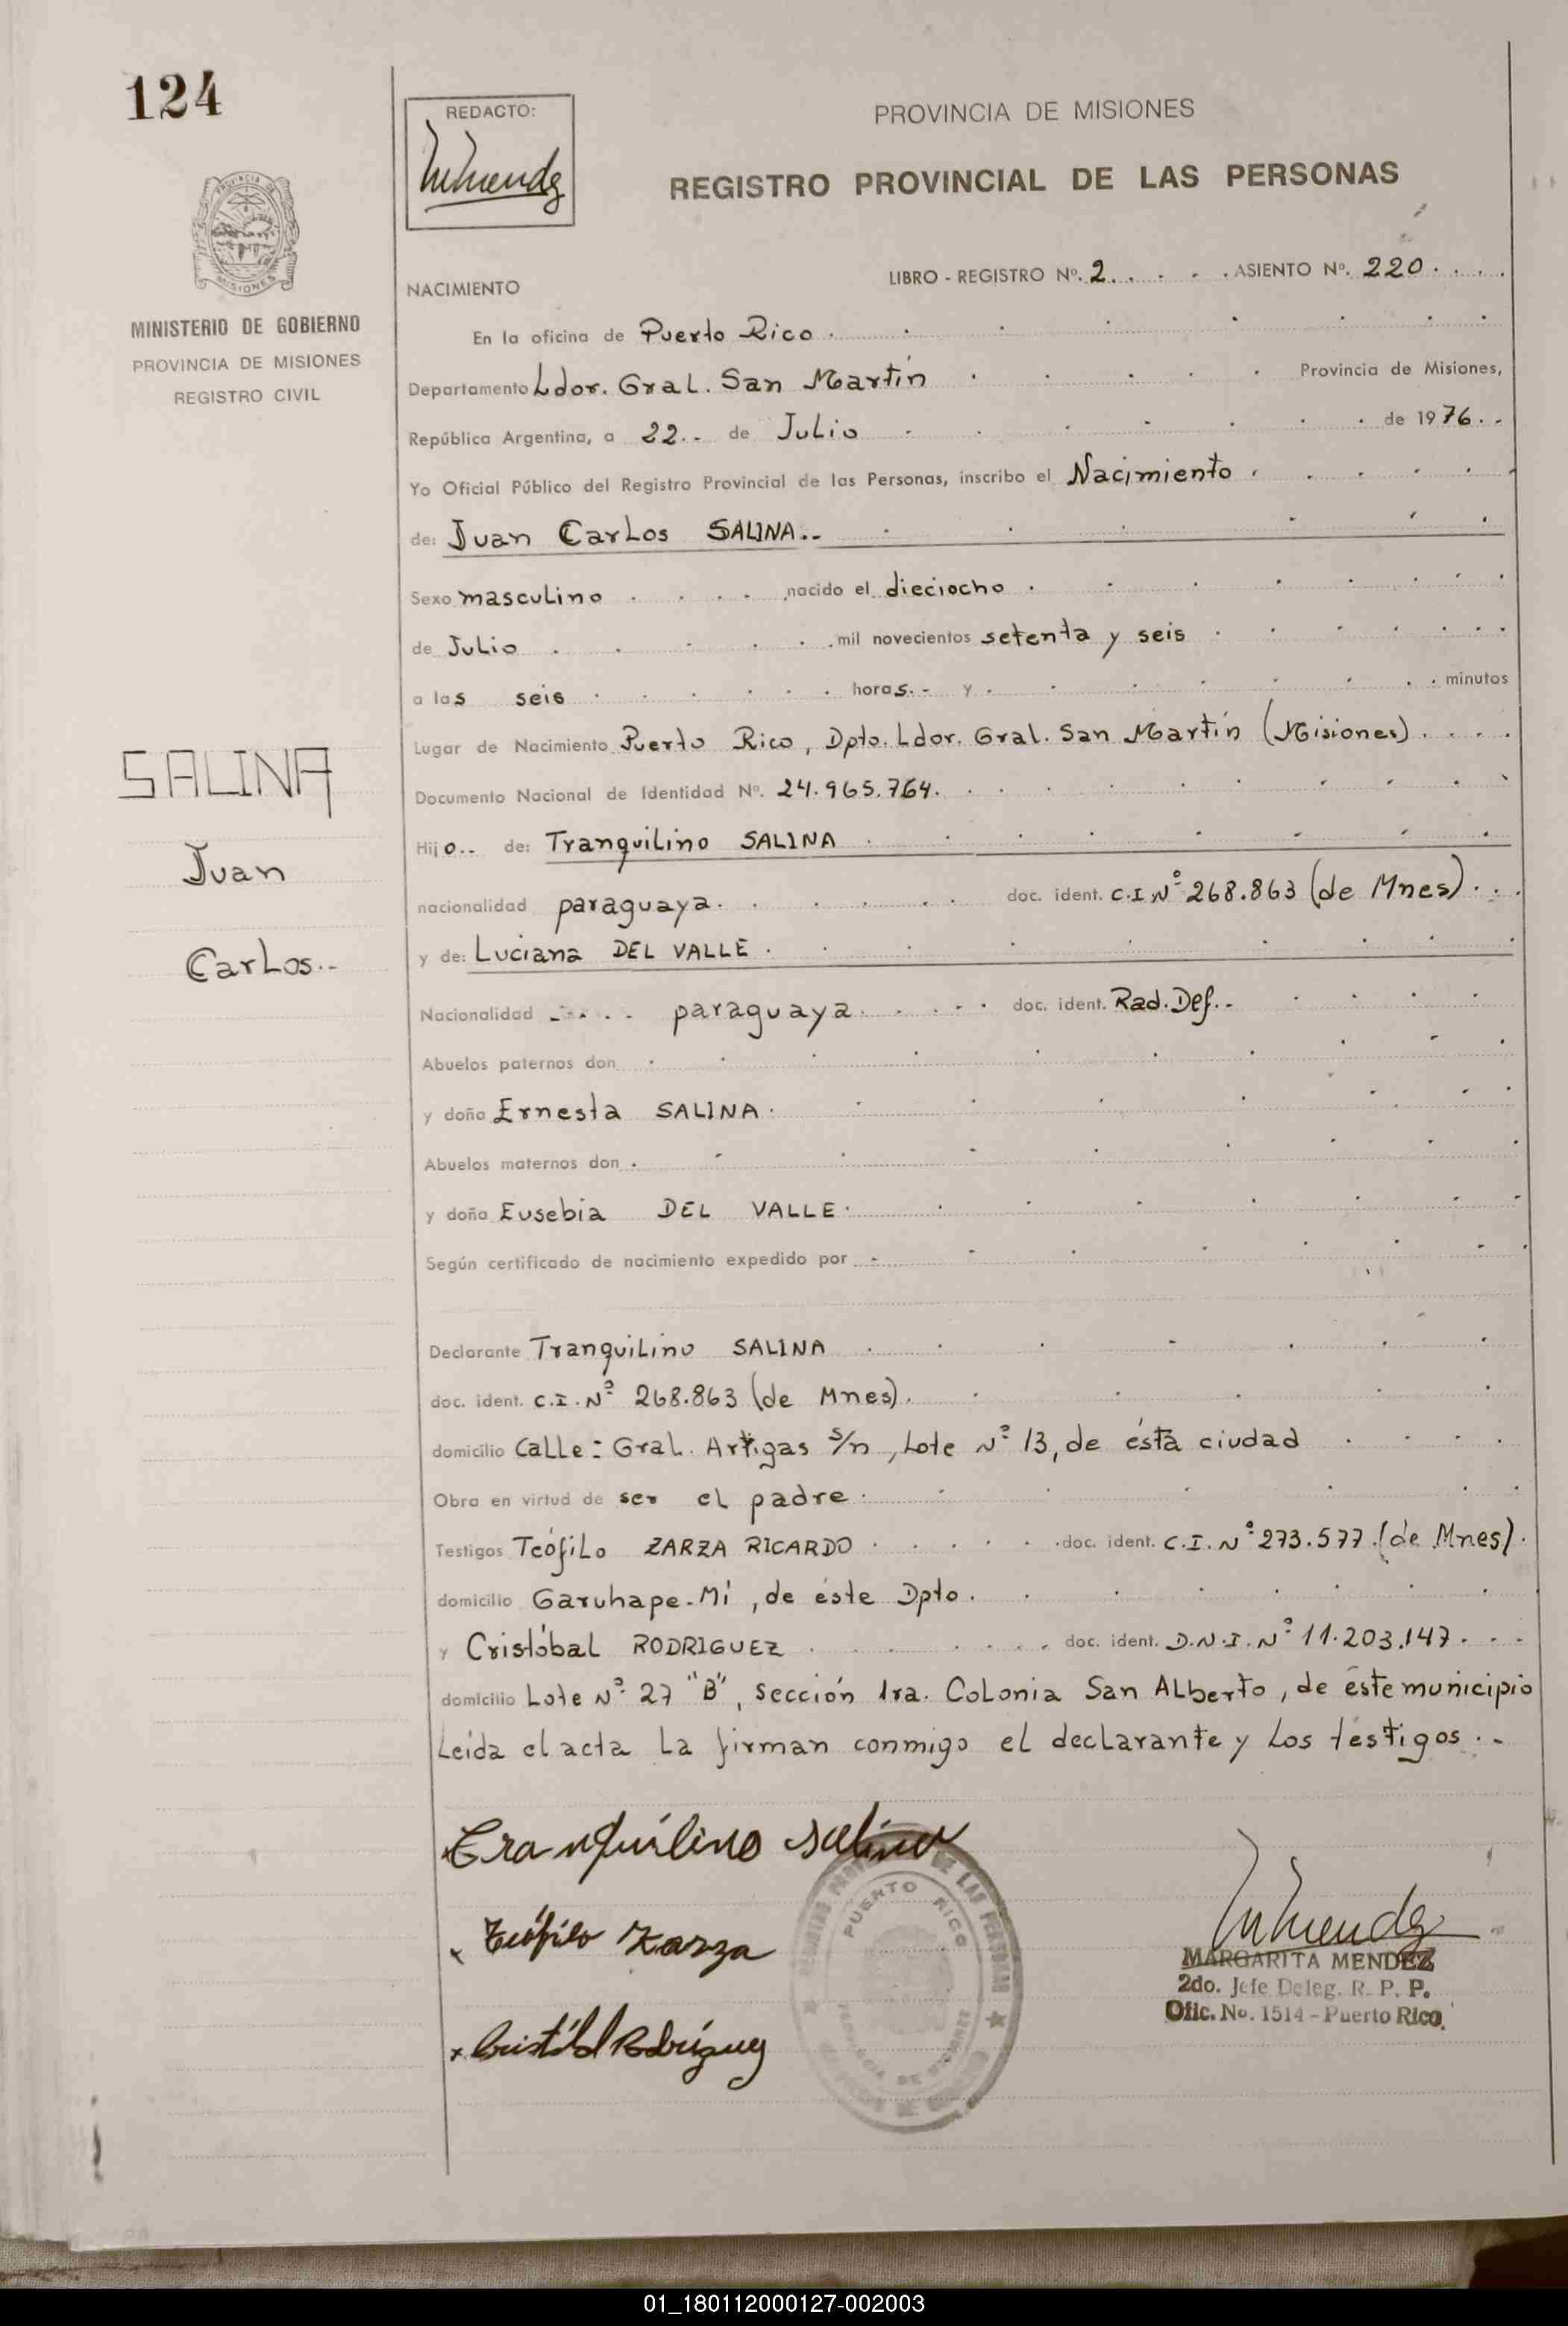 124
REDACTO:
PROVINCIA DE MISIONES
REGISTRO PROVINCIAL DE LAS PERSONAS
PROVINCIA DE
MISIONES
MINISTERIO DE GOBIERNO
PROVINCIA DE MISIONES
REGISTRO CIVIL
LIBRO - REGISTRO Nº. 2. . . . . ASIENTO Nº. 220 . . . .
NACIMIENTO
En la oficina de Puerto Rico .
Departamento Ldor. Gral. San Martín . Provincia de Misiones,
República Argentina, a 22.. de Julio . de 1976. .
Yo Oficial Público del Registro Provincial de las Personas, inscribo el Nacimiento .
de: Juan Carlos SALINA..
Sexo masculino . . . . nacido el dieciocho .
de Julio . . . . . mil novecientos setenta y seis .
a las seis . . . . . . horas.- y . . . . . . minutos
Lugar de Nacimiento Puerto Rico, Dpto. Ldor. Gral. San Martín (Misiones) . . . .
SALINA
Juan
Carlos..
Documento Nacional de Identidad Nº. 24.965.764. .
Hijo.. de: Tranquilino SALINA .
nacionalidad paraguaya. . . . . . doc. ident. C.I Nº 268.863 (de Mnes) . . .
y de: Luciana DEL VALLE .
Nacionalidad - . . . . paraguaya . . . . . doc. ident. Rad. Def. .
Abuelos paternos don .
y doña Ernesta SALINA .
Abuelos maternos don .
y doña Eusebia DEL VALLE .
Según certificado de nacimiento expedido por .
Declarante Tranquilino SALINA .
doc. ident. C.I. Nº 268.863 (de Mnes) .
domicilio Calle: Gral. Artigas s/n, Lote Nº 13, de ésta ciudad . . . .
Obra en virtud de ser el padre .
Testigos Teófilo ZARZA RICARDO . . . . . doc. ident. C.I. Nº 273.577 (de Mnes) .
domicilio Garuhape-Mí, de éste Dpto. .
y Cristóbal RODRIGUEZ . . . . . doc. ident. D.N.I. Nº 11.203.147 . . .
domicilio Lote Nº 27 "B", sección 1ra. Colonia San Alberto, de éste municipio
Leída el acta la firman conmigo el declarante y los testigos . .
Tranquilino Salina
Teófilo Zarza
x Cristóbal Rodríguez
PUERTO RICO
DE LAS PERSONAS
MARGARITA MENDEZ
2do. Jefe Deleg. R. P. P.
Ofic. No. 1514 - Puerto Rico
01_180112000127-002003